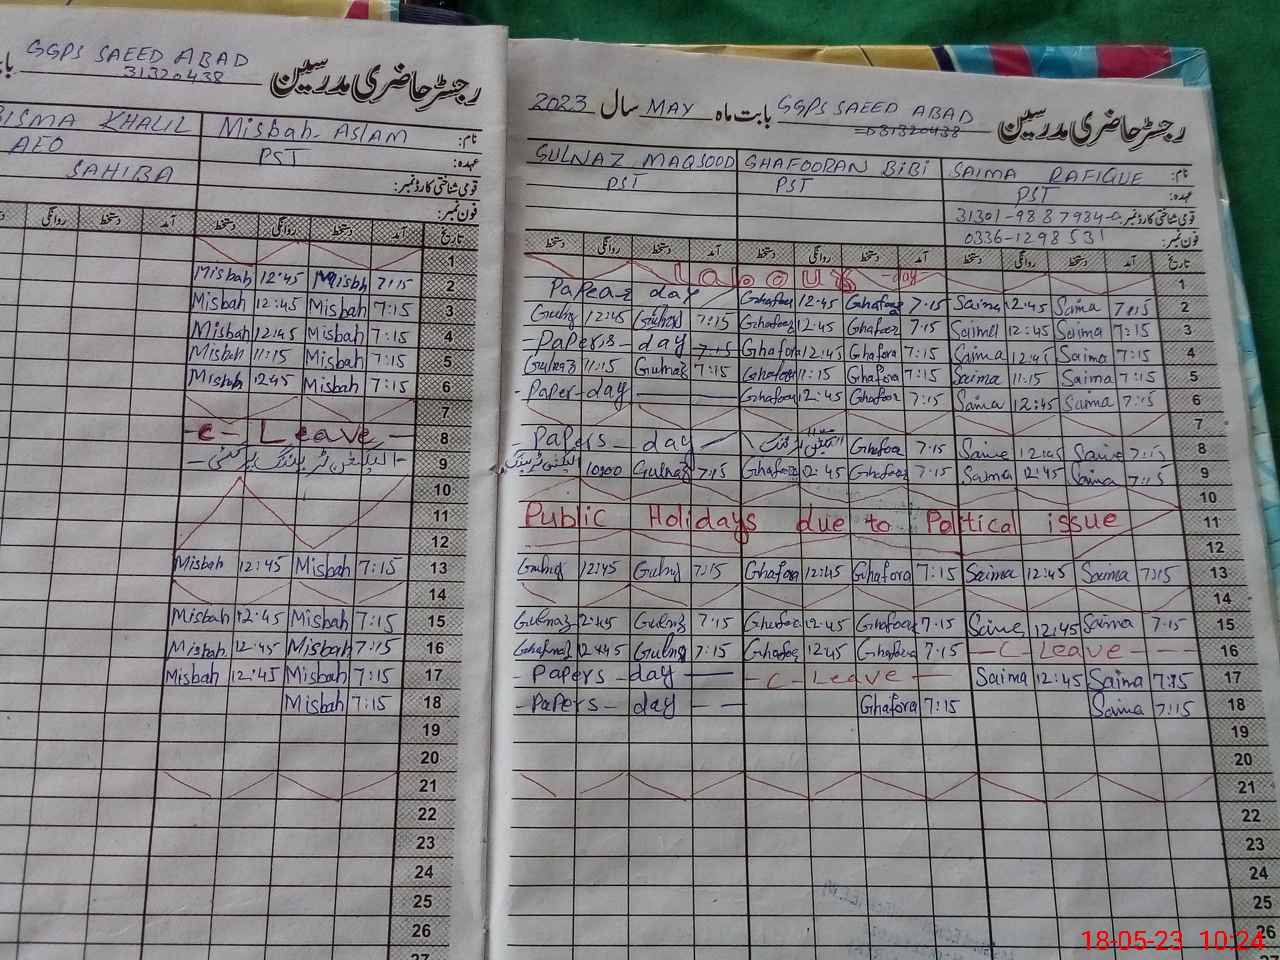 GGPS SAEED ABAD
31320438
رجسٹر حاضری مدرسین
BISMA KHALIL Misbah ASLAM نام:
AEO PST عہدہ:
SAHIBA قومی شناختی کارڈ نمبر:
فون نمبر:
دستخط روانگی دستخط آمد دستخط روانگی دستخط آمد تاریخ
1
Misbah 12:45 Misbh 7:15 2
Misbah 12:45 Misbah 7:15 3
Misbah 12:45 Misbah 7:15 4
Misbah 11:15 Misbah 7:15 5
Misbah 12:45 Misbah 7:15 6
7
-c- Leave - 8
9
10
11
12
Misbah 12:45 Misbah 7:15 13
14
Misbah 12:45 Misbah 7:15 15
Misbah 12:45 Misbah 7:15 16
Misbah 12:45 Misbah 7:15 17
Misbah 7:15 18
19
20
21
22
23
24
25
26
27
2023 سال MAY بابت ماہ GGPS SAEED ABAD رجسٹر حاضری مدرسین
31320438
GULNAZ MAQSOOD GHAFOORAN BIBI SAIMA RAFIQUE نام:
PST PST PST عہدہ:
قومی شناختی کارڈ نمبر: 31301-9887984-0
فون نمبر: 0336-1298531
دستخط روانگی دستخط آمد دستخط روانگی دستخط آمد دستخط روانگی دستخط آمد تاریخ
Labour -day- 1
day Ghafoor 12:45 Ghafoor 7:15 Saima 12:45 Saima 7:15 2
Gulnaz 12:45 Gulnaz 7:15 Ghafoor 12:45 Ghafoor 7:15 Saima 12:45 Saima 7:15 3
-Papers- day 7:15 Ghafora 12:45 Ghafora 7:15 Saima 12:45 Saima 7:15 4
Gulnaz 11:15 Gulnaz 7:15 Ghafoor 11:15 Ghafora 7:15 Saima 11:15 Saima 7:15 5
-Paper-day Ghafoor 12:45 Ghafoor 7:15 Saima 12:45 Saima 7:15 6
7
-Papers- day Ghafoor 7:15 Saima 12:45 Saima 7:15 8
10:00 Gulnaz 7:15 Ghafoor 12:45 Ghafoor 7:15 Saima 12:45 Saima 7:15 9
10
Public Holidays due to Political issue 11
12
Gulnaz 12:45 Gulnaz 7:15 Ghafora 12:45 Ghafora 7:15 Saima 12:45 Saima 7:15 13
14
Gulnaz 12:45 Gulnaz 7:15 Ghafoor 12:45 Ghafoor 7:15 Saima 12:45 Saima 7:15 15
12:45 Gulnaz 7:15 Ghafoor 12:45 Ghafora 7:15 -C- Leave - - - 16
- Papers- day -C- Leave - Saima 12:45 Saima 7:15 17
- Papers- day - - Ghafora 7:15 Saima 7:15 18
19
20
21
22
23
24
25
26
27
18-05-23 10:24